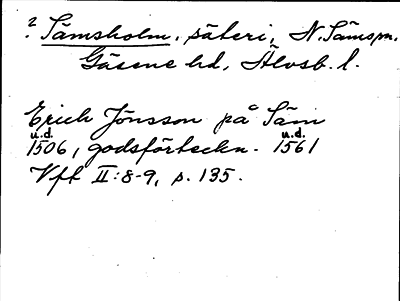 ? Sämsholm, säteri, N. Säms sn,
Gäsene hd, Älvsb. l.
Erich Jönsson på Säm
u.d. u.d.
1506, godsförteckn. 1561
Vft II:8-9, p. 135.